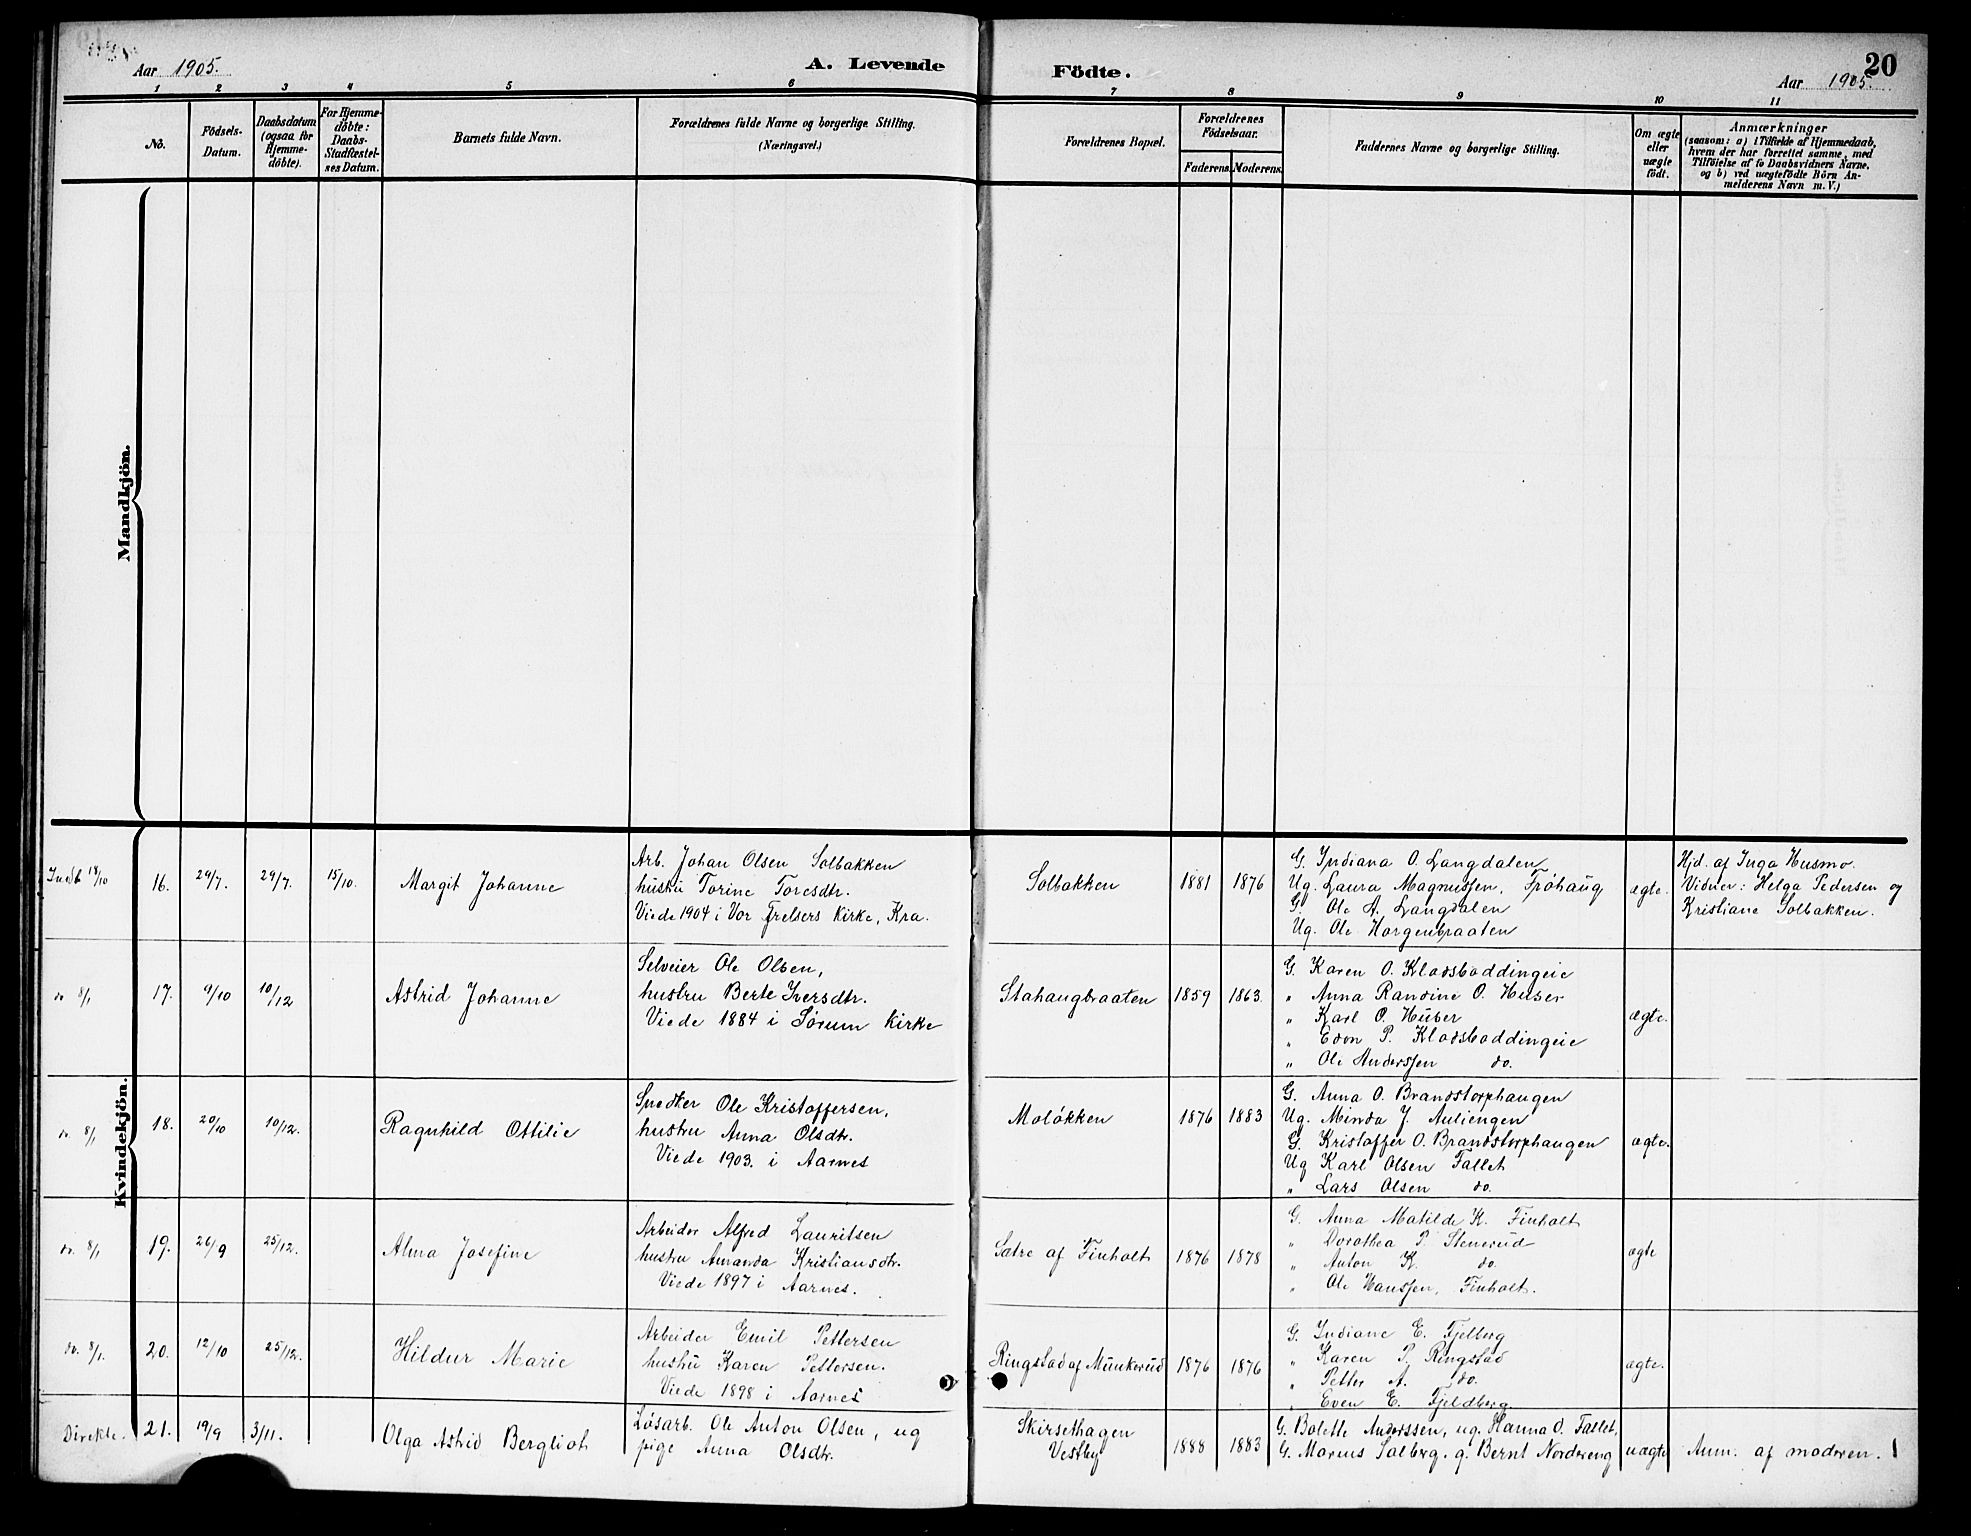 Aar 1905.
A. Levende
Födte.
20
Aar 1905.
1 2 3 4 5 6 7 8 9 10 11
No.
Födsels-
Datum.
Daabsdatum
(ogsaa for
Hjemme-
döbte).
For Hjemme-
döbte:
Daabs-
Stadfæstel-
ses Datum.
Barnets fulde Navn.
Forældrenes fulde Navne og borgerlige Stilling.
(Næringsvei.)
Forældrenes Bopæl.
Forældrenes
Födselsaar.
Faderens. Moderens.
Faddernes Navne og borgerlige Stilling.
Om ægte
eller
uægte
födt.
Anmærkninger
(saasom: a) i Tilfælde af Hjemmedaab,
hvem der har forrettet samme, med
Tilföielse af to Daabsvidners Navne,
og b) ved uægtefödte Börn An-
melderens Navn m. V.)
Mandkjön.
Kvindekjön.
Indb 18/10 16. 29/7. 29/7. 15/10. Margit Johanne
Arb. Johan Olsen Solbakken
hustru Torine Toresdtr.
Viede 1904 i Vor Frelsers Kirke, Kra.
Solbakken 1881 1876
G. Indiana O. Langdalen
Ug. Laura Magnussen, Frøhaug
G. Ole A. Langdalen
Ug. Ole Horgenbraaten
ægte.
Hjd. af Inga Husmo.
Vidner: Helga Pedersen og
Kristiane Solbakken.
do 8/1 17. 9/10 10/12 Astrid Johanne
Selveier Ole Olsen,
hustru Berte Iversdtr.
Viede 1884 i Sørum Kirke
Stahaugbraaten 1859 1863.
G. Karen O. Klodsboddingeie
" Anna Randine O. Huser
" Karl O. Huser
" Edvn P. Klodsboddingeie
" Ole Anderssen do.
ægte.
do. 8/1 18. 20/10 10/12. Ragnhild Ottilie
Snedker Ole Kristoffersen,
hustru Anna Olsdtr.
Viede 1903. i Aarnes
Moløkken 1876 1883
G. Anna O. Brandstorphaugen
Ug. Minda J. Auliengen
G. Kristoffer O. Brandstorphaugen
Ug Karl Olsen Fallet
" Lars Olsen do.
ægte.
do. 8/1 19. 26/9 25/12. Alma Josefine
Arbeider Alfred Lauritsen
hustru Amanda Kristiansdtr.
Viede 1897 i Aarnes.
Sætre af Finholt 1876 1878
G. Anna Matilde K. Finholt
" Dorothea P. Stenerud
" Anton K. do.
" Ole Hanssen, Finholt.
ægte
do. 8/1. 20. 12/10 25/12. Hildur Marie
Arbeider Emil Pettersen
hustru Karen Pettersen.
Viede 1898 i Aarnes
Ringstad af Munkerud 1876 1876
G. Indiane E. Fjelberg
" Karen P. Ringstad
" Petter A. do.
" Even E. Fjeldberg.
ægte.
Direkte. 21. 19/9 3/11. Olga Astrid Bergliot
Løsarb. Ole Anton Olsen, ug
pige Anna Olsdtr.
Skirsethagen
Vestby 1888 1883
G. Bolette Anderssen, ug. Hanna O. Fallet,
G. Marius Solberg. g. Bernt Nordereng
uægte Anm. af moderen.